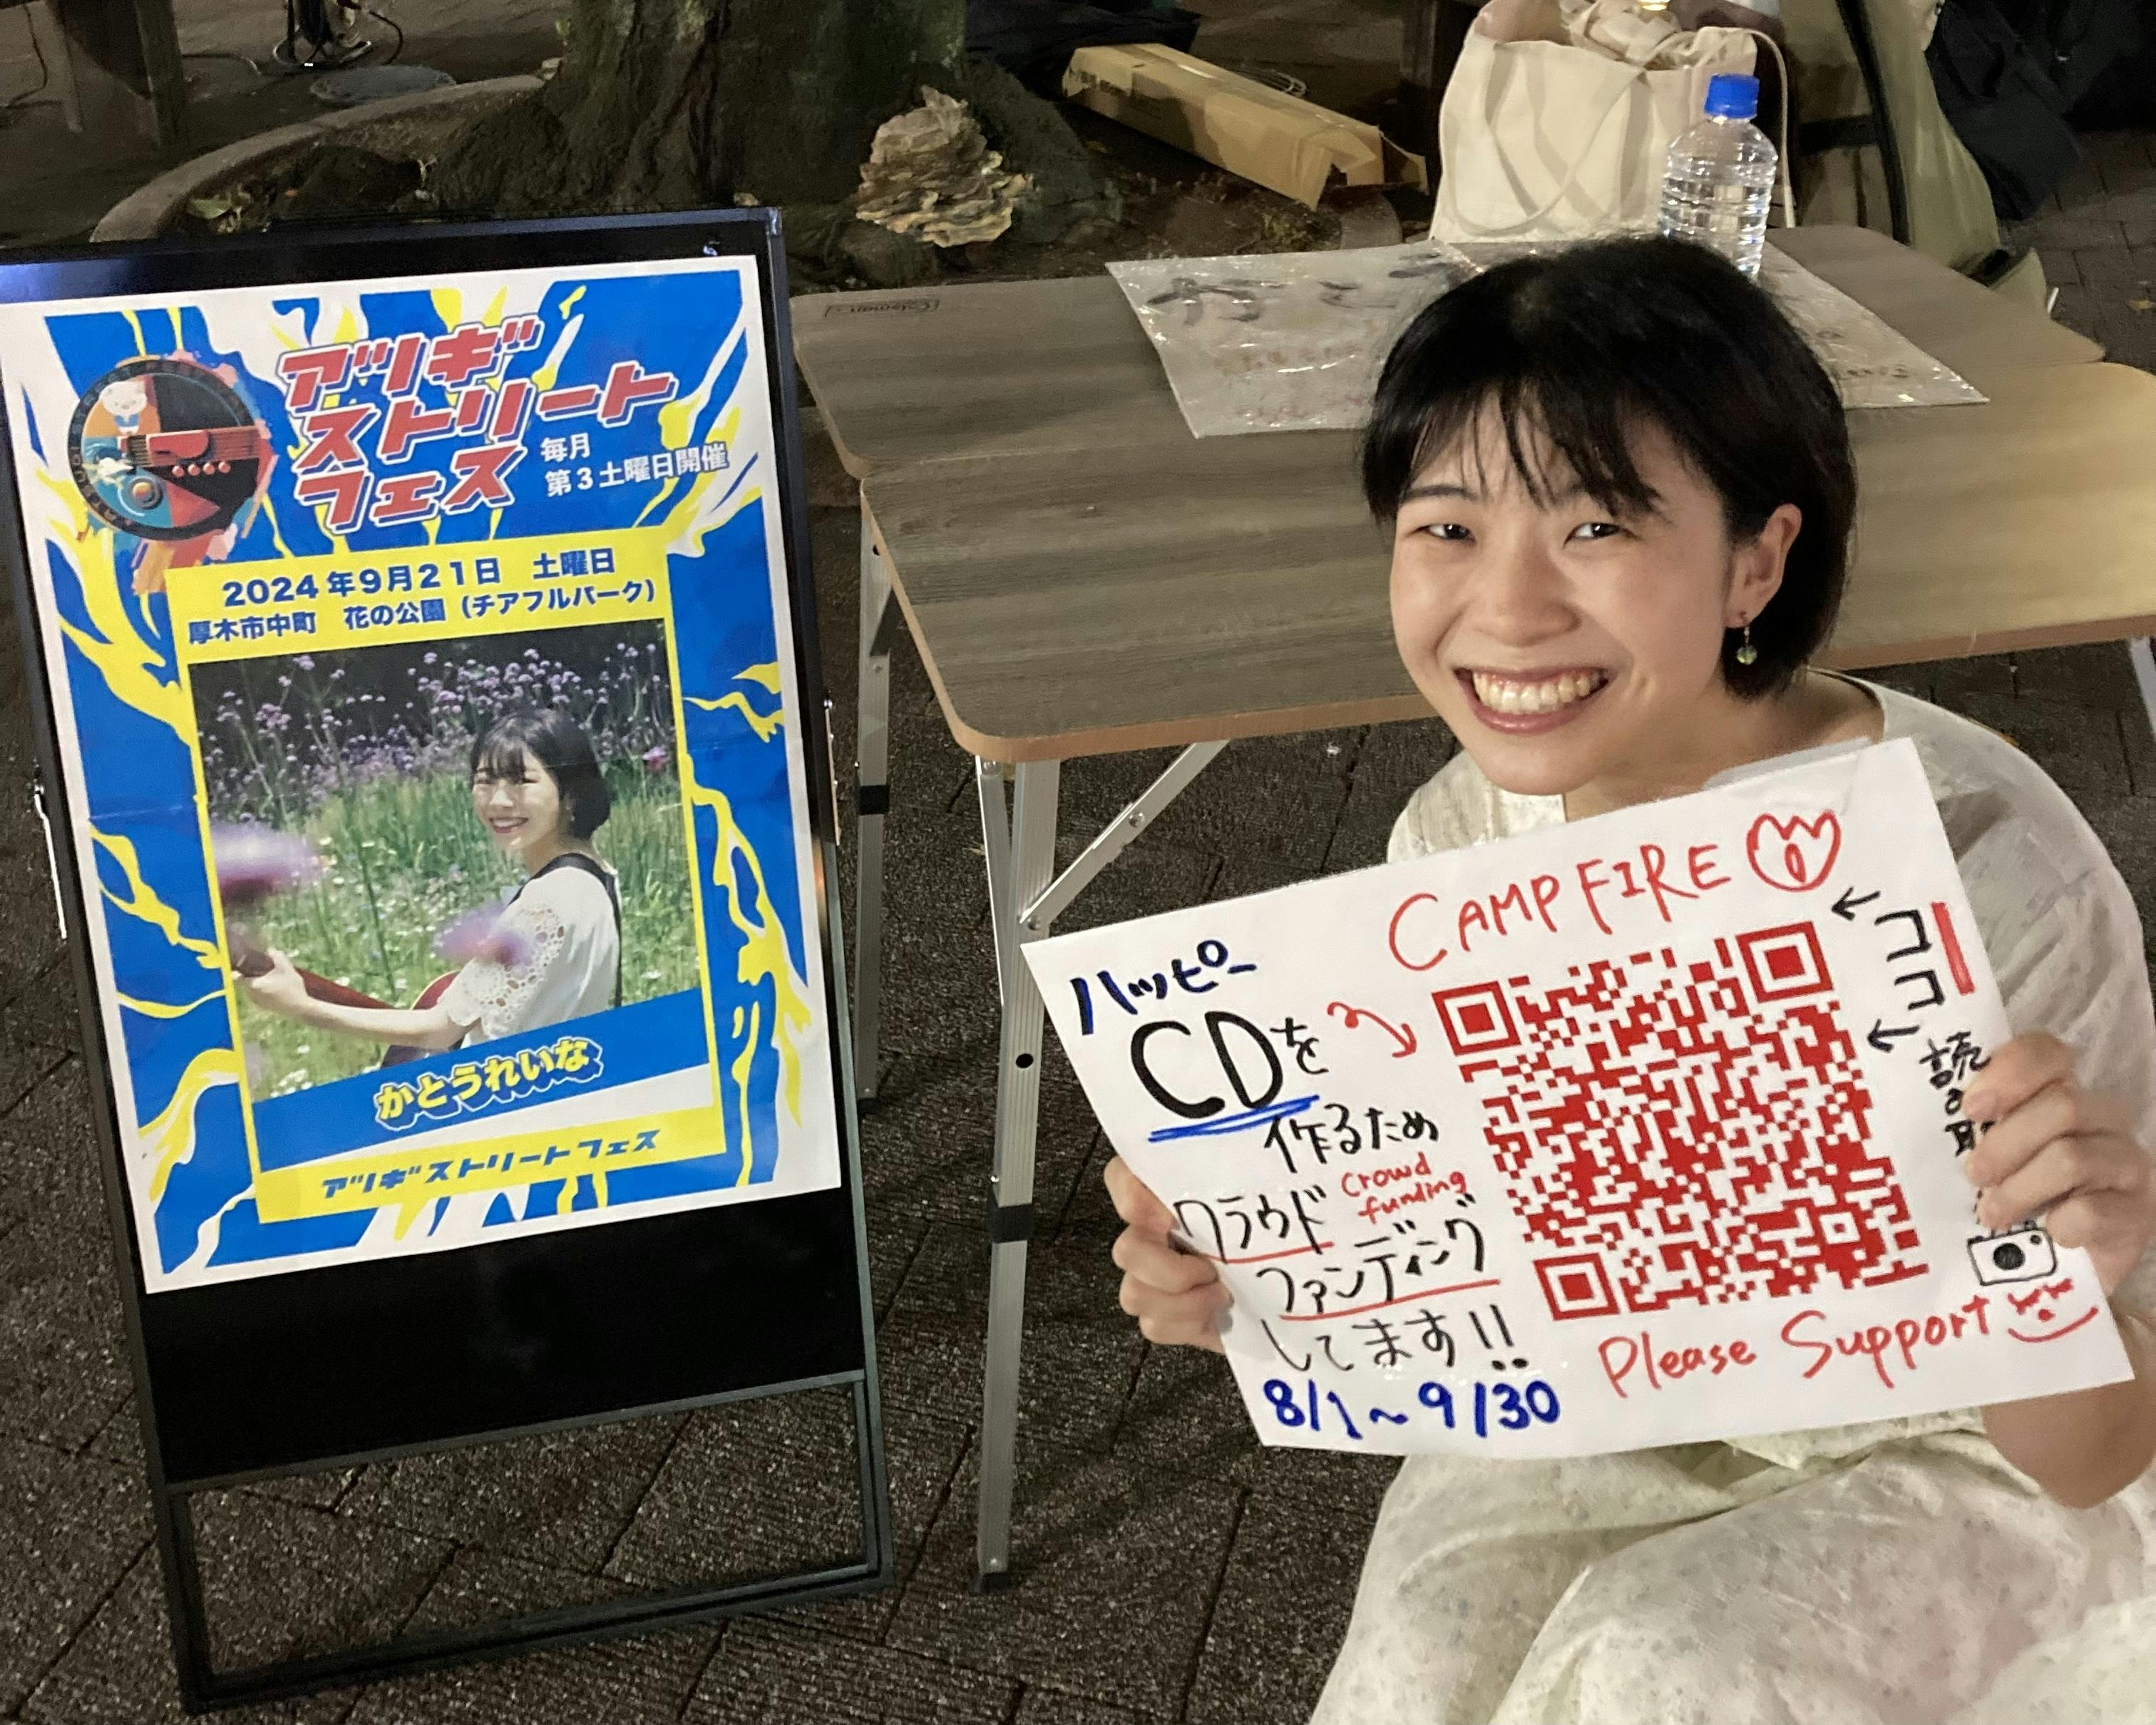 アツギ
ストリート
フェス
毎月
第3土曜日開催
2024年9月21日 土曜日
厚木市中町 花の公園（チアフルパーク）
かとうれいな
アツギストリートフェス
Coleman
CAMPFIRE
ハッピー
CDを
作るため
クラウド
crowd
funding
ファンディング
してます!!
8/1～9/30
ココ
読み取
Please Support